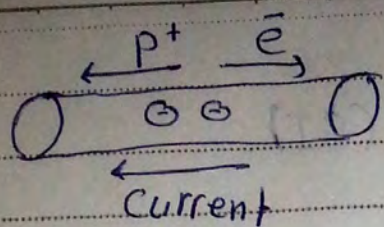 p⁺ ē
⊖ ⊖
Current